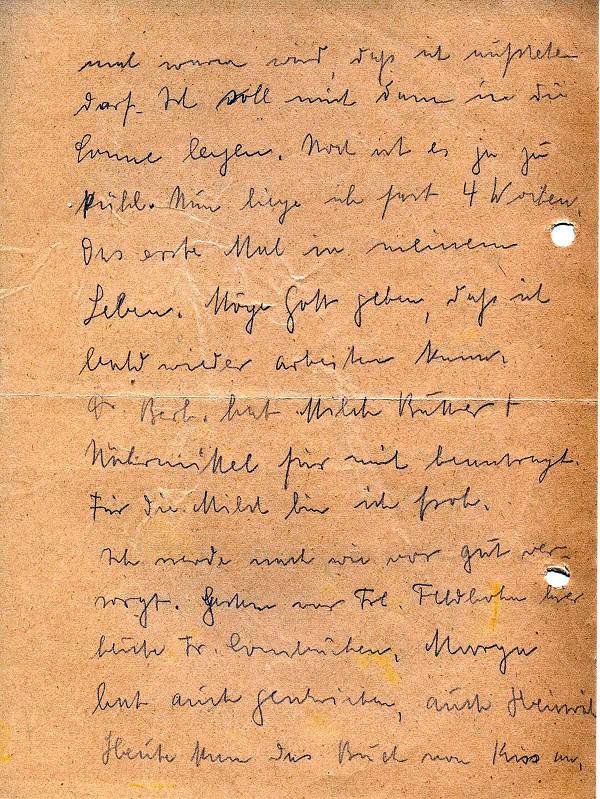 mal warm wird, daß ich aufstehen
darf. Ich soll mich dann in die
Sonne legen. Noch ist es ja zu
kühl. Nun liege ich fast 4 Wochen,
das erste Mal in meinem
Leben. Möge Gott geben, daß ich
bald wieder arbeiten kann.
Dr. hat Milch Butter +
Nährmittel für mich beantragt.
Für die Milch bin ich froh.
Ich werde nach wie vor gut ver-
sorgt. Gestern war Frl. hier
heute Fr.
hat auch geschrieben, auch Heinrich
Heute kam das Buch von Kiss an,